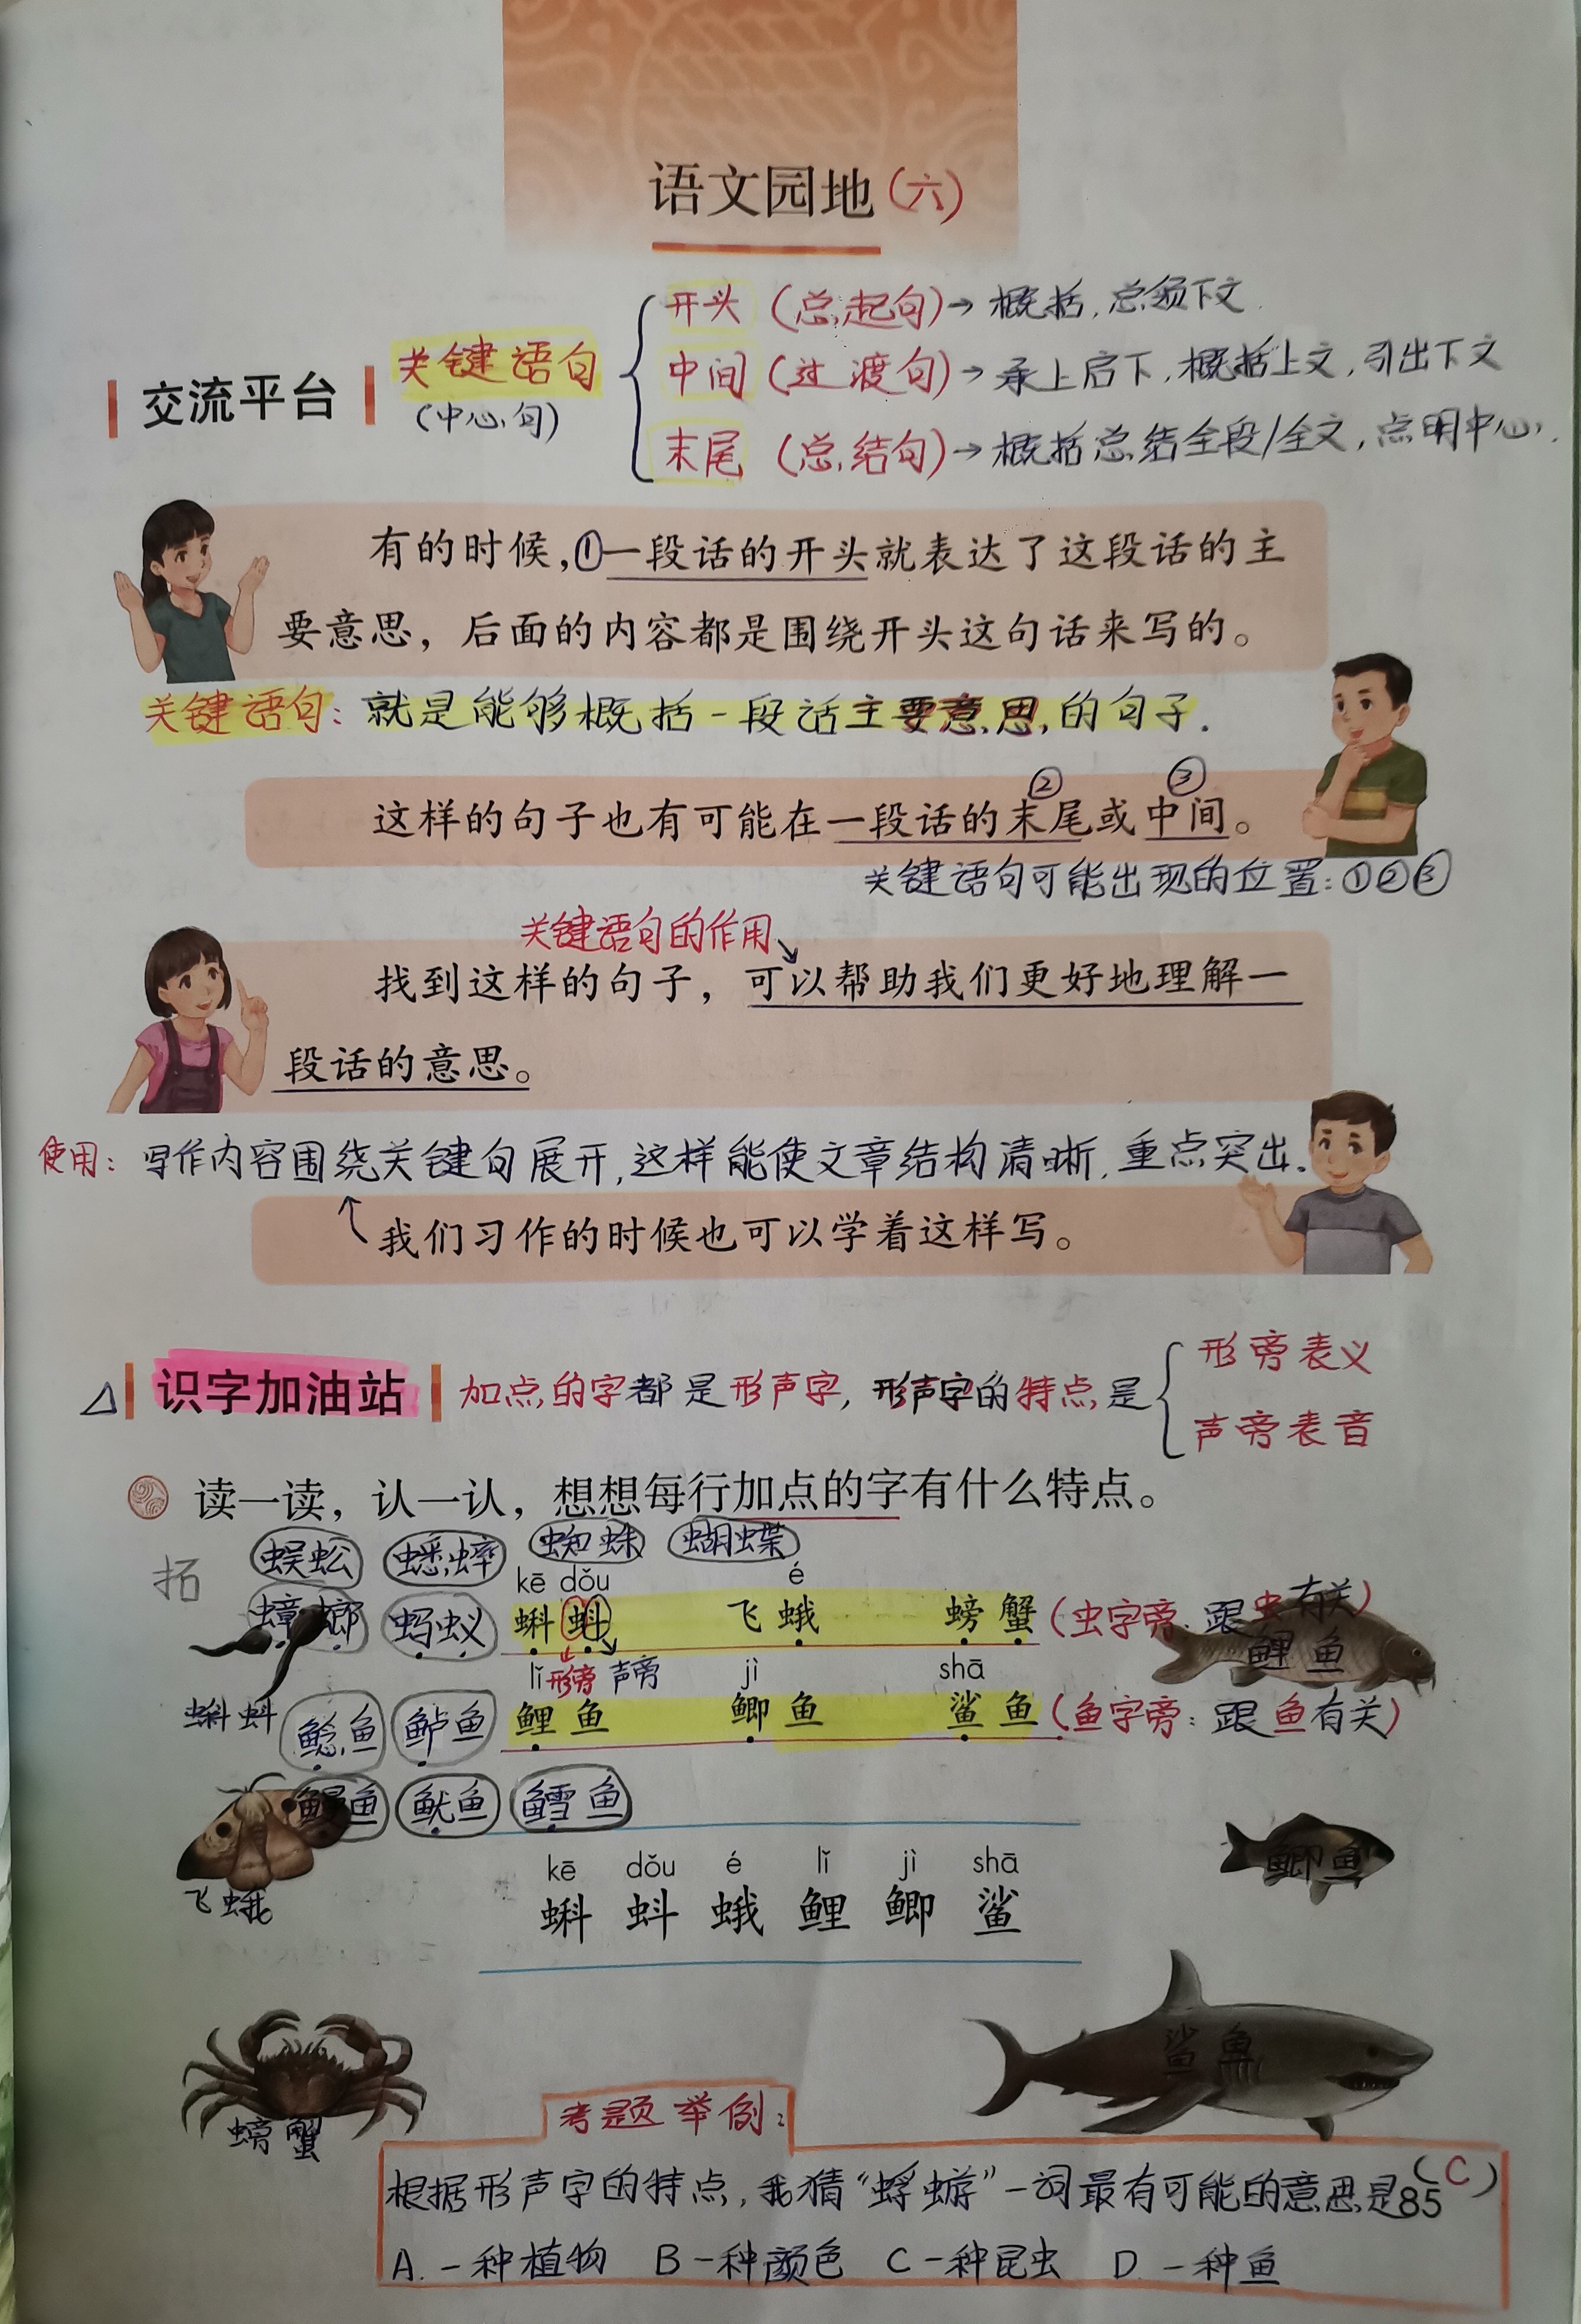 语文园地(六)
开头(总起句)→概括,总领下文
交流平台 关键语句 中间(过渡句)→承上启下,概括上文,引出下文
(中心句)
末尾(总结句)→概括总结全段/全文,点明中心.
有的时候,①一段话的开头就表达了这段话的主
要意思,后面的内容都是围绕开头这句话来写的。
关键语句:就是能够概括一段话主要意思的句子.
② ③
这样的句子也有可能在一段话的末尾或中间。
关键语句可能出现的位置:①②③
关键语句的作用
找到这样的句子,可以帮助我们更好地理解一
段话的意思。
使用:写作内容围绕关键句展开,这样能使文章结构清晰,重点突出.
我们习作的时候也可以学着这样写。
形旁表义
△识字加油站 加点的字都是形声字,形声字的特点是
声旁表音
读一读,认一认,想想每行加点的字有什么特点。
拓 蜈蚣 蟋蟀 蜘蛛 蝴蝶
kē dǒu é
蟑螂 蚂蚁 蝌蚪 飞蛾 螃蟹(虫字旁:跟虫有关)
鲤鱼
lǐ 形旁 声旁 jì shā
蝌蚪 鲶鱼 鲈鱼 鲤鱼 鲫鱼 鲨鱼(鱼字旁:跟鱼有关)
鳗鱼 鱿鱼 鳕鱼
kē dǒu é lǐ jì shā
鲫鱼
飞蛾 蝌 蚪 蛾 鲤 鲫 鲨
鲨鱼
螃蟹
考题举例:
根据形声字的特点,我猜“蜉蝣”一词最有可能的意思是(C)
85
A.一种植物 B一种颜色 C一种昆虫 D.一种鱼